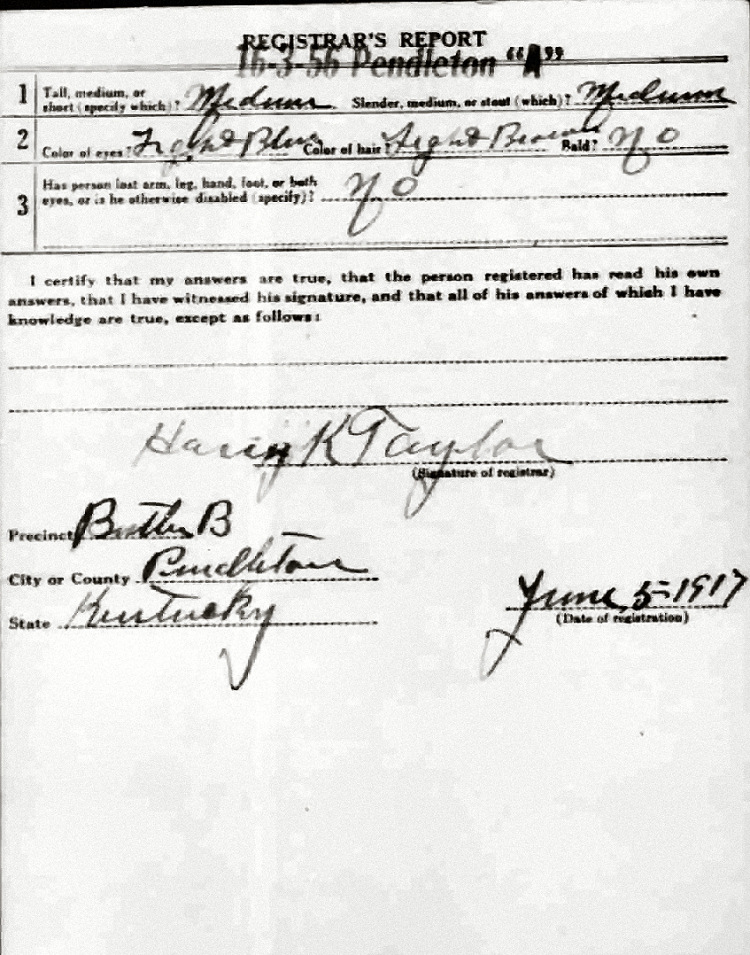 REGISTRAR'S REPORT
16-3-56 Pendleton "A"
1 Tall, medium, or short (specify which)? Medium Slender, medium, or stout (which)? Medium
2 Color of eyes? Light Blue Color of hair? Light Brown Bald? No
3 Has person lost arm, leg, hand, foot, or both
eyes, or is he otherwise disabled (specify)? No
I certify that my answers are true, that the person registered has read his own
answers, that I have witnessed his signature, and that all of his answers of which I have
knowledge are true, except as follows:
Harry K Taylor
(Signature of registrar)
Precinct Butler B
City or County Pendleton
State Kentucky
June 5-1917
(Date of registration)